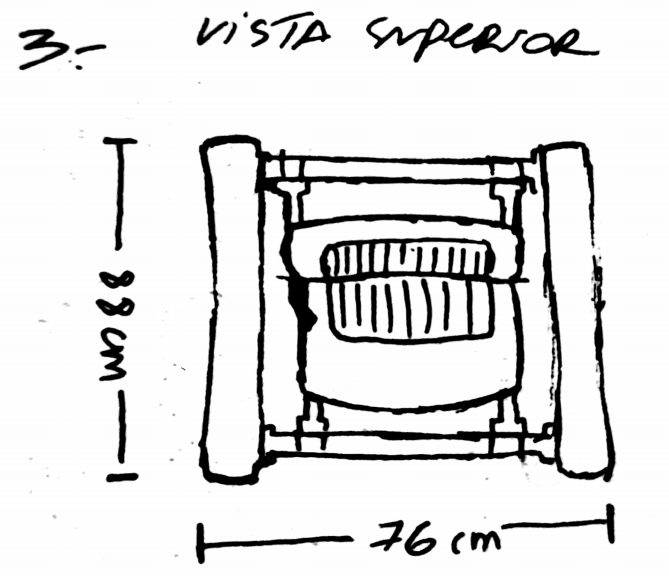 3.- VISTA SUPERIOR
88 cm
76 cm